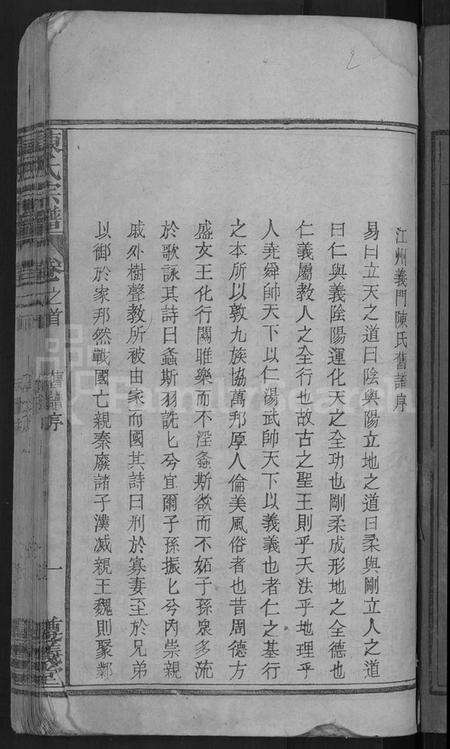 2
江州義門陳氏舊譜序
易曰立天之道曰陰與陽立地之道曰柔與剛立人之道
曰仁與義陰陽運化天之全功也剛柔成形地之全德也
仁義屬教人之全行也故古之聖王則乎天法乎地理乎
人堯舜帥天下以仁湯武帥天下以義義也者仁之基行
之本所以敦九族協萬邦厚人倫美風俗者也昔周德方
盛文王化行關雎樂而不淫螽斯欲而不妬子孫衆多流
於歌詠其詩曰螽斯羽詵匕兮宜爾子孫振匕兮内崇親
戚外樹聲教所被由家而國其詩曰刑於寡妻至於兄弟
以御於家邦然戰國亡親秦廢諸子漢滅親王魏則聚鄴
陳氏宗譜
卷之首
舊譜序
一
義堂
FamilySearch